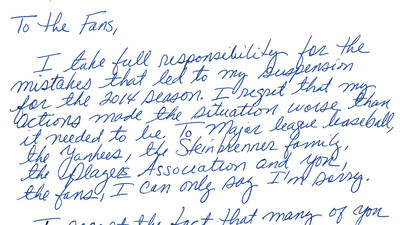 To the Fans,
I take full responsibility for the
mistakes that led to my suspension
for the 2014 season. I regret that my
actions made the situation worse than
it needed to be. To Major League Baseball,
the Yankees, the Steinbrenner family,
the Players Association and you,
the fans, I can only say I'm sorry.
I accept the fact that many of you